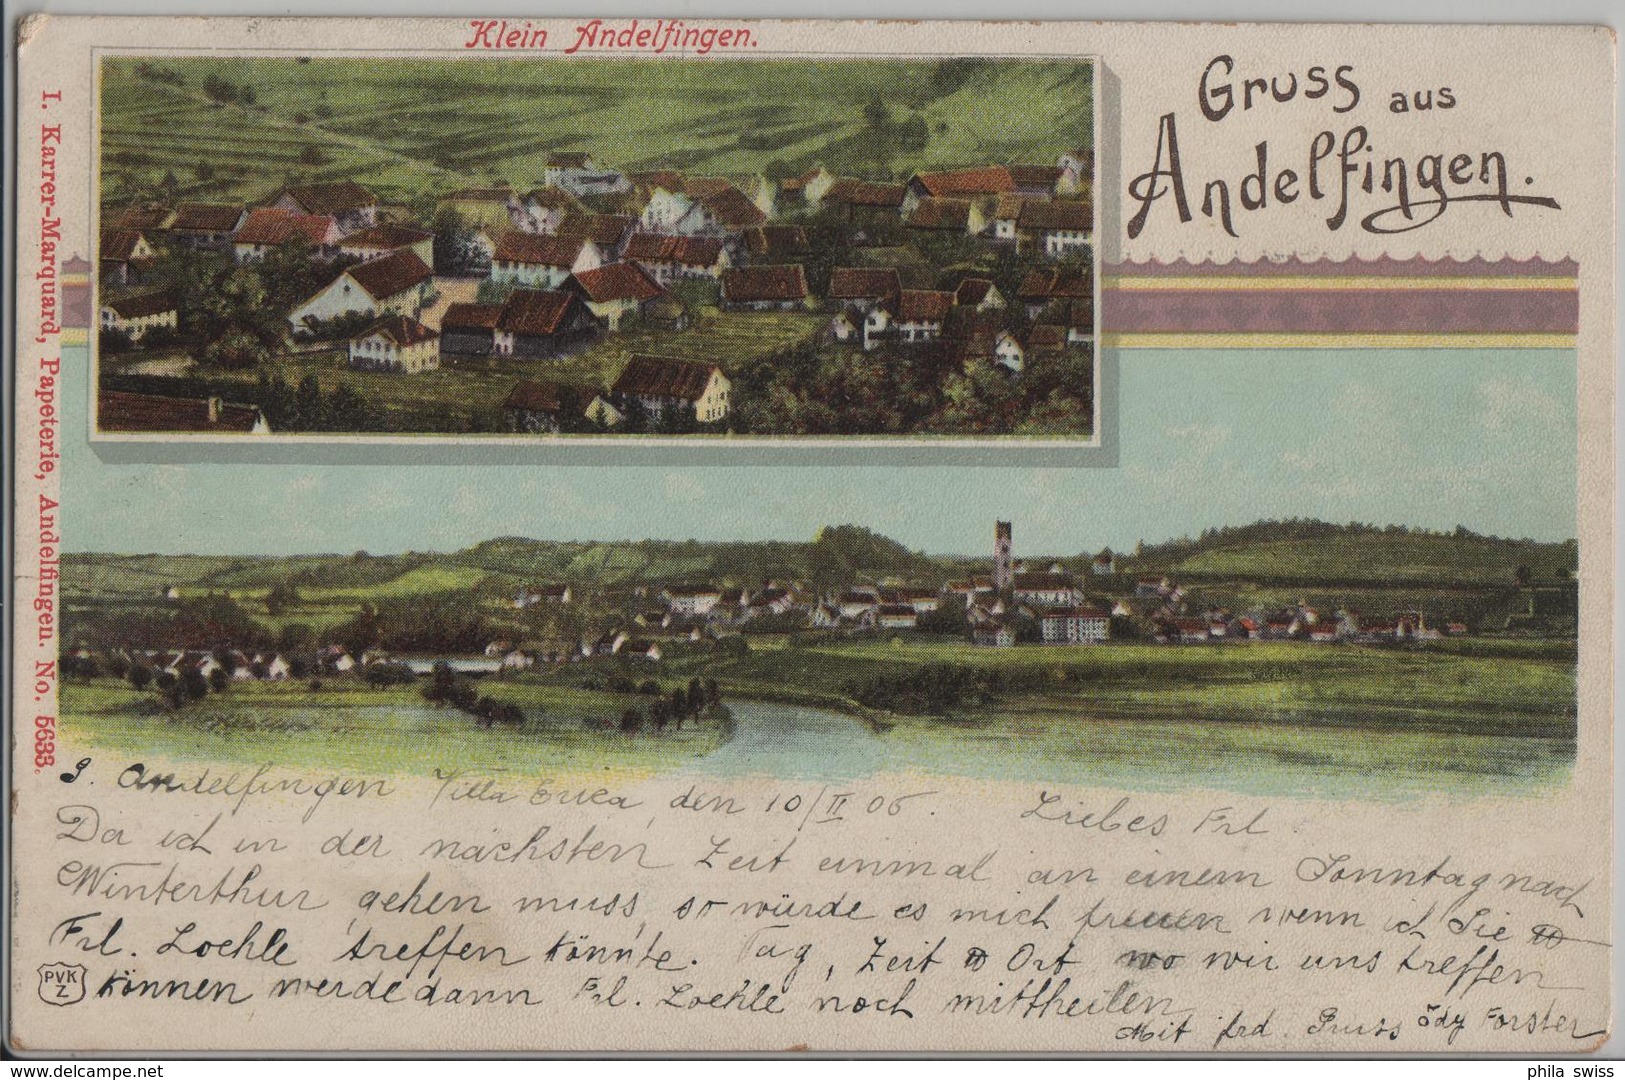 Klein Andelfingen.
Gruss aus
Andelfingen.
I. Karrer-Marquard, Papeterie, Andelfingen. No. 5633.
Andelfingen Villa Erica, den 10/II 06. Liebes Frl.
Da ich in der nächsten Zeit einmal an einem Sonntag nach
Winterthur gehen muss, so würde es mich freuen wenn ich Sie &
Frl. Lochle treffen könnte. Tag, Zeit & Ort wo wir uns treffen
können werde dann Frl. Lochle noch mittheilen
Mit frd. Gruss Ody Forster
PVK
Z
delcampe.net
phila swiss